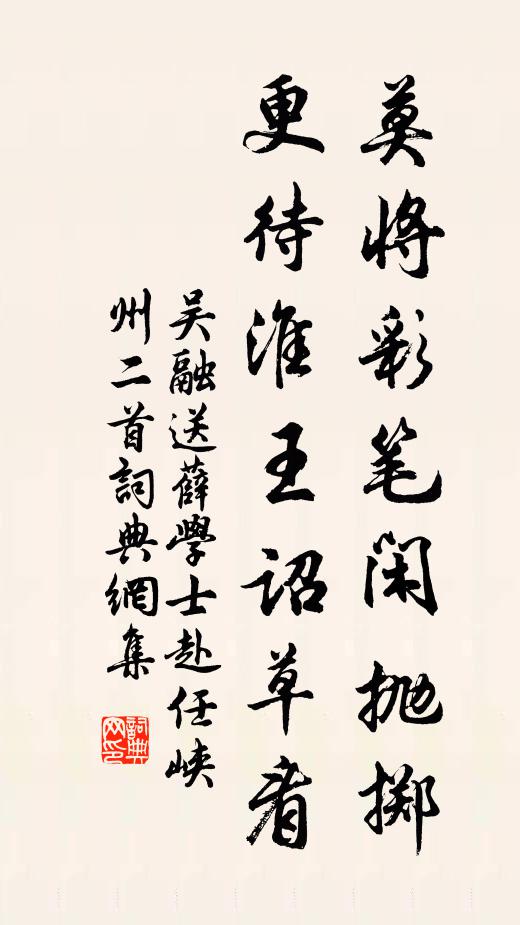 莫將彩笔闲抛掷
更待淮王诏草看
吴融送薛學士赴任峡
州二首詞典網集
詞典網印